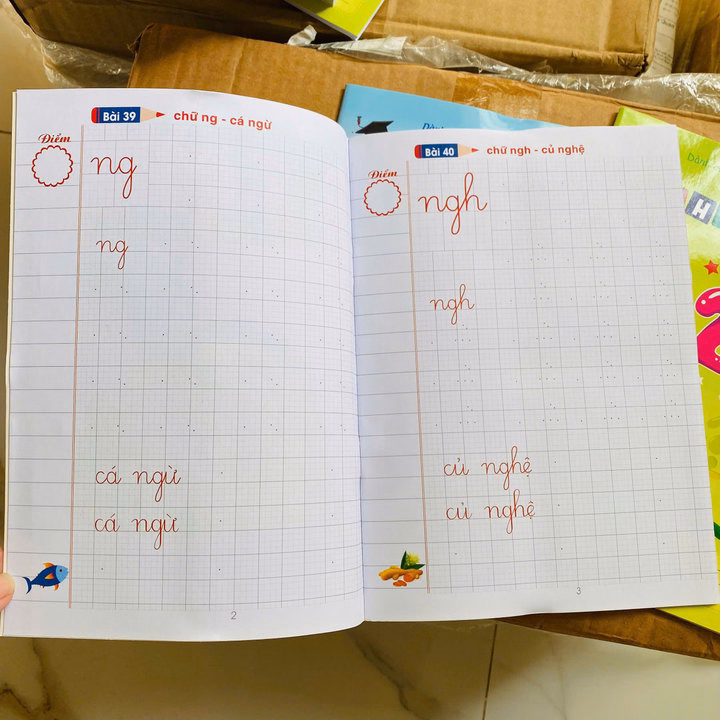 Bài 39 chữ ng - cá ngừ
Điểm
ng
ng
cá ngừ
cá ngừ
2
Bài 40 chữ ngh - củ nghệ
Điểm
ngh
ngh
củ nghệ
củ nghệ
3
H
2